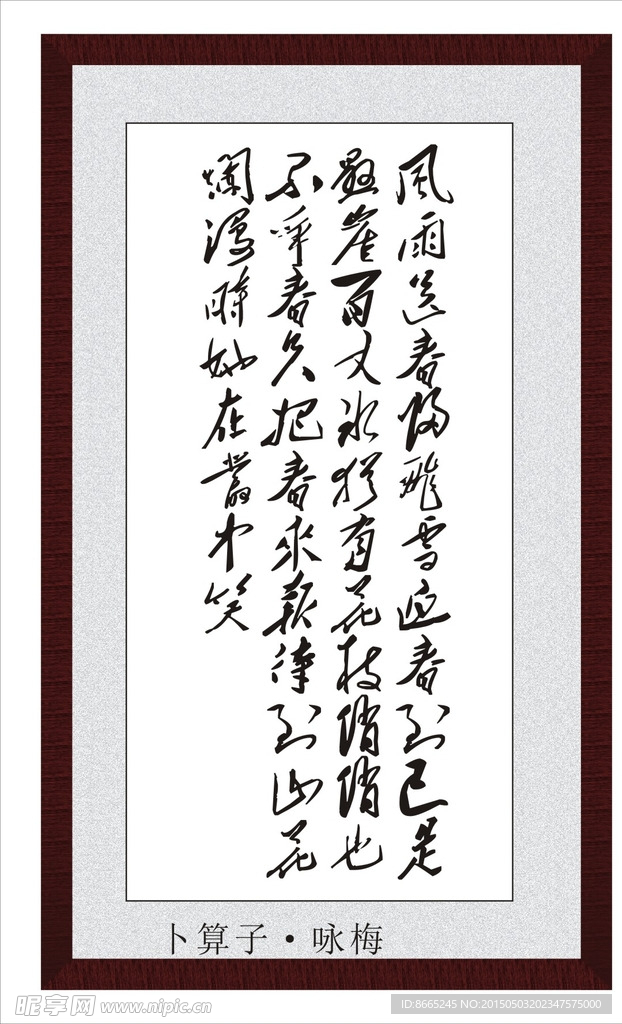 風雨送春歸飛雪迎春到已是
懸崖百丈冰猶有花枝俏俏也
不爭春只把春來報待到山花
爛漫時她在叢中笑
卜算子·咏梅
昵享网 www.nipic.cn
ID:8665245 NO:20150503202347575000